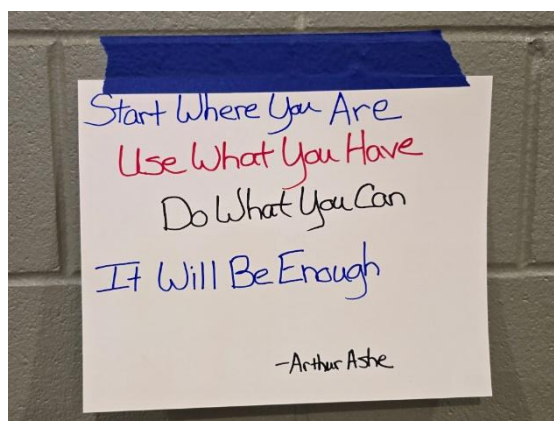 Start Where You Are
Use What You Have
Do What You Can
It Will Be Enough
-Arthur Ashe